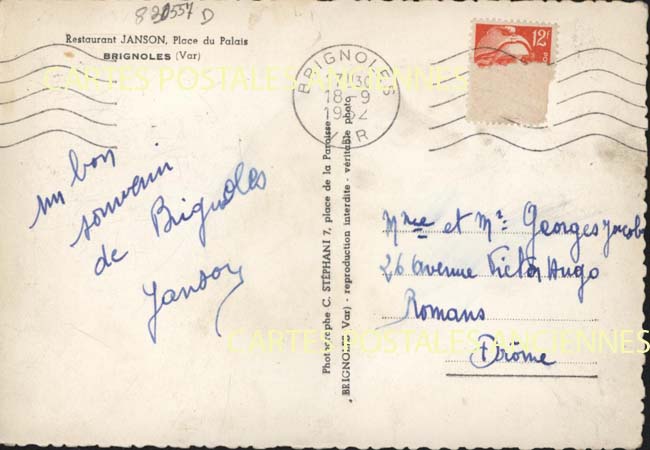 820557 D
Restaurant JANSON, Place du Palais
BRIGNOLES (Var)
BRIGNOLES
17H30
18-9
1952
VAR
12F
CARTES POSTALES ANCIENNES
un bon
souvenir
de Brignoles
Janson
Photographe C. STÉPHANI 7, place de la Paroisse
BRIGNOLES Var) - reproduction interdite - véritable photo
Mme et Mr Georges Jacob
26 Avenue Victor Hugo
Romans
Drôme
CARTES POSTALES ANCIENNES